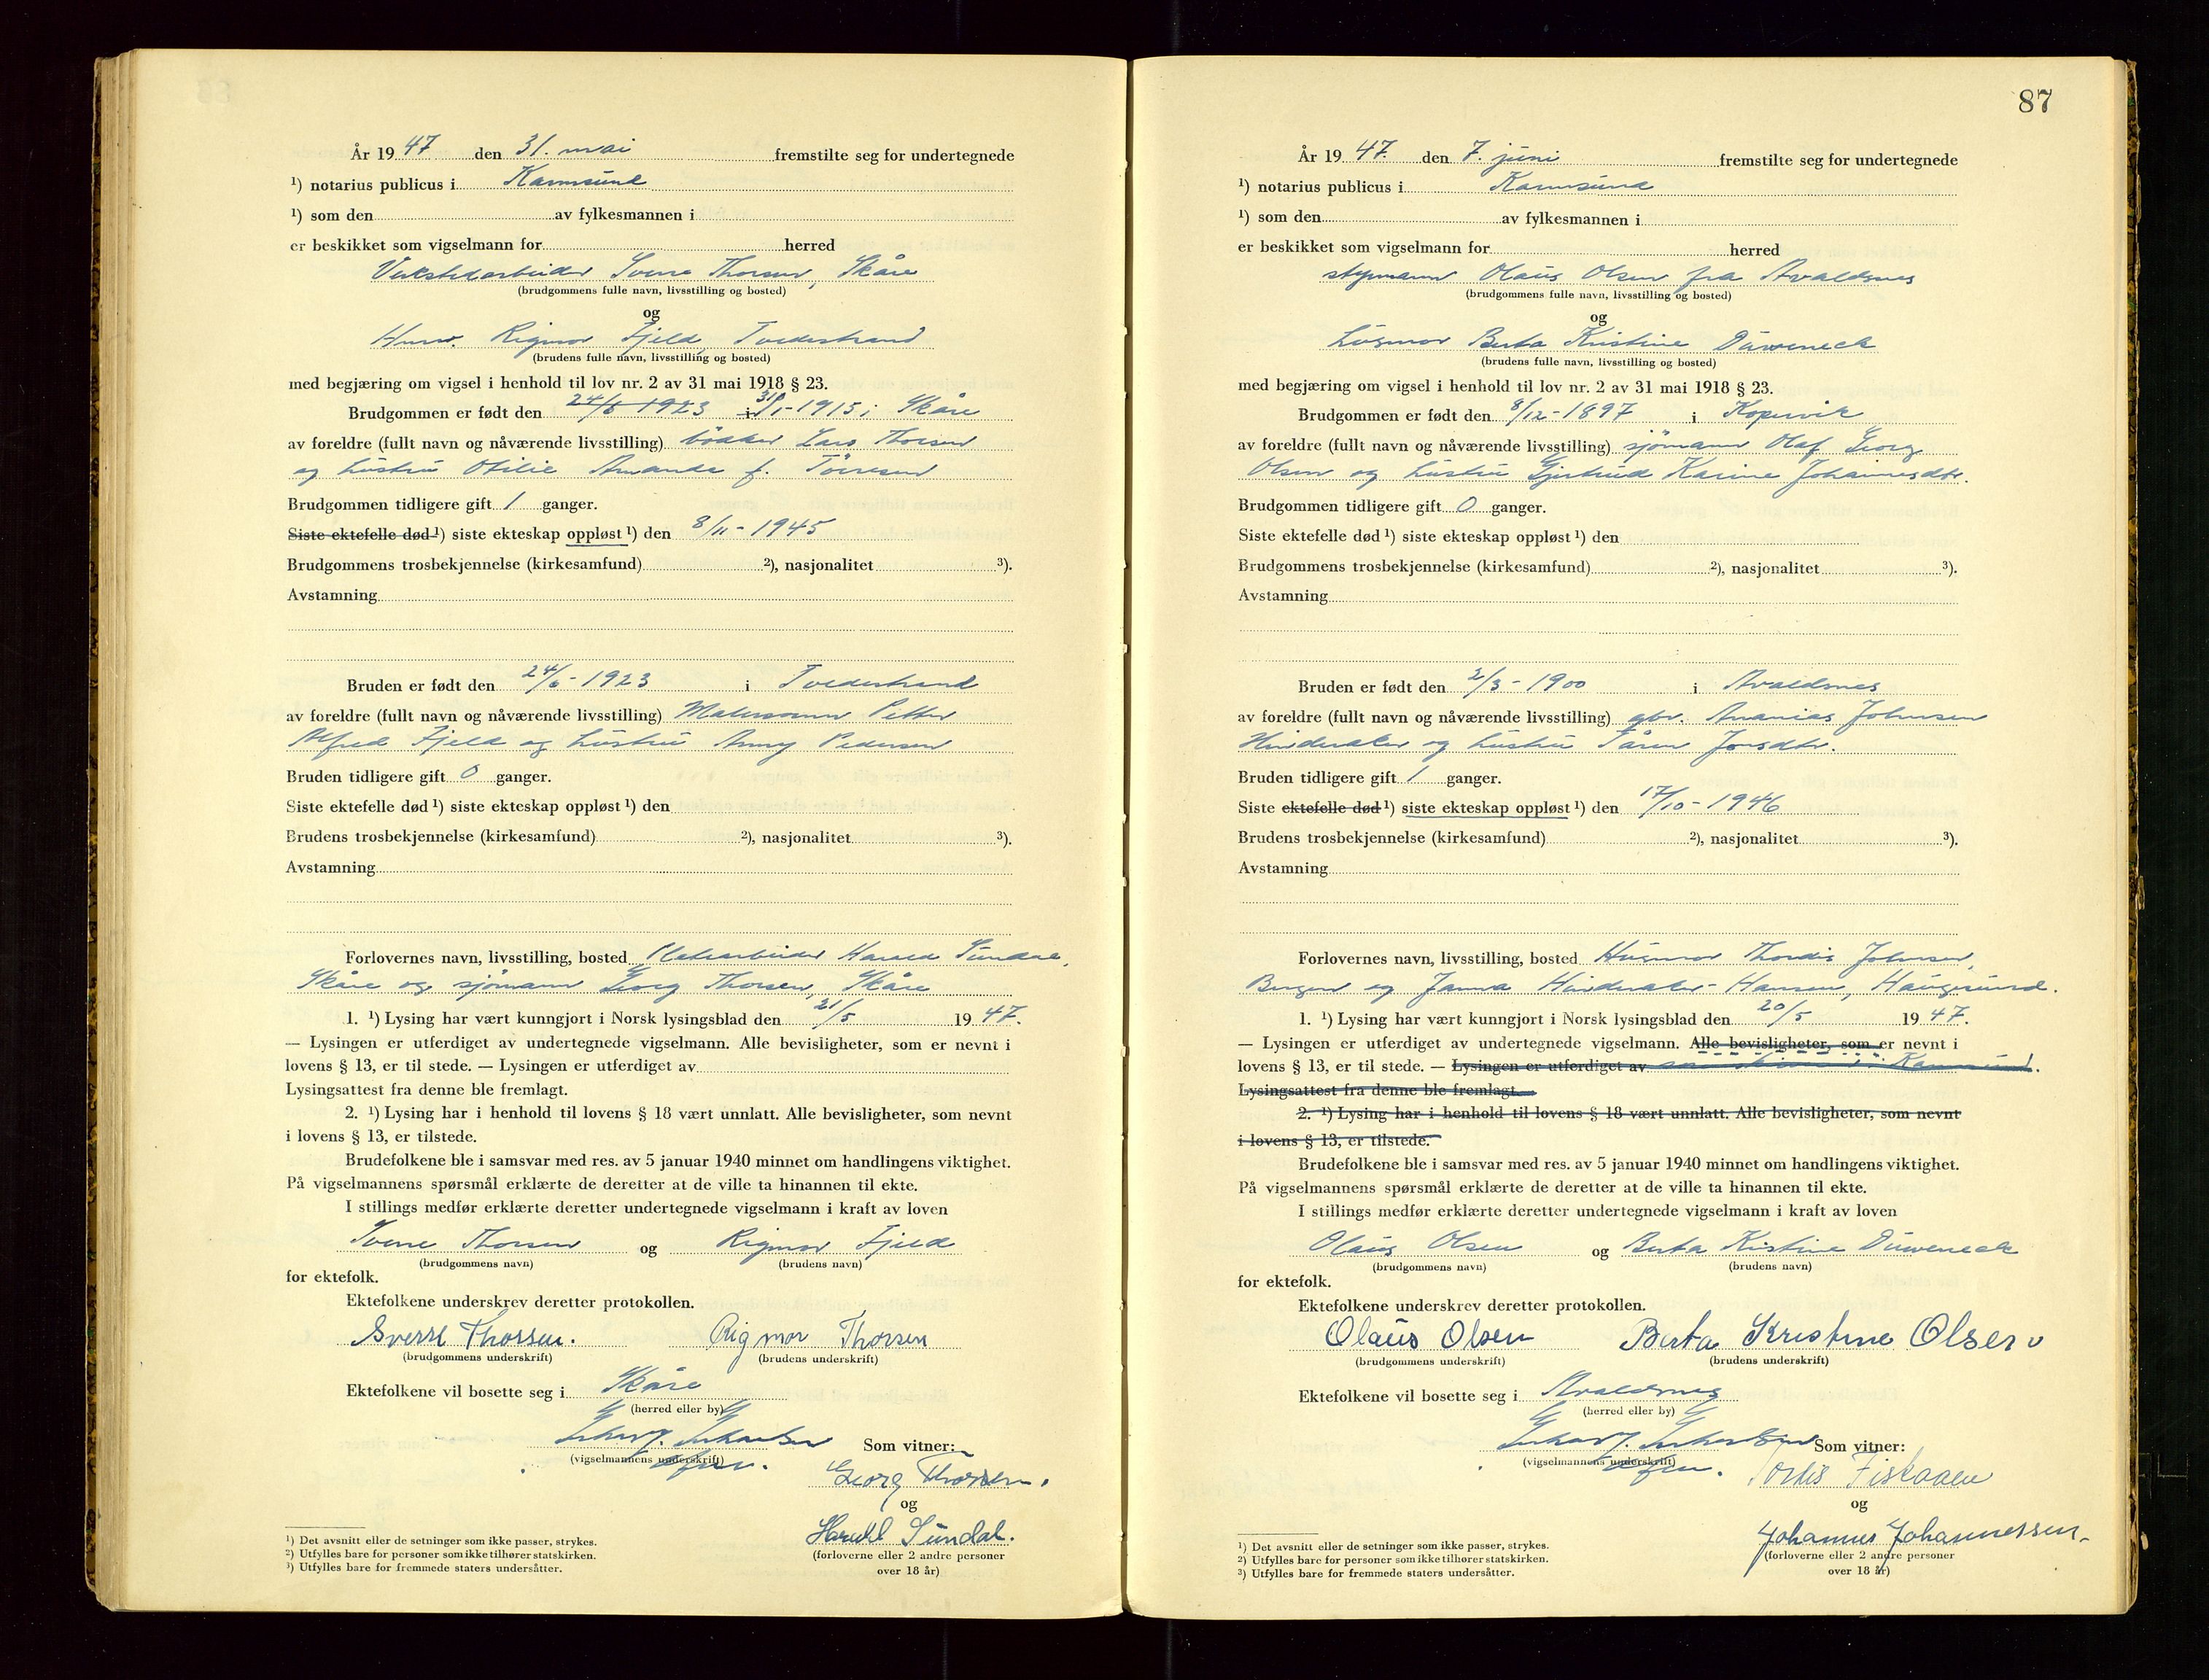 År 19 47 den 31. mai fremstilte seg for undertegnede
¹) notarius publicus i Karmsund
¹) som den av fylkesmannen i
er beskikket som vigselmann for herred
Verkstedarbeider Sverre Thorsen, Skåre
(brudgommens fulle navn, livsstilling og bosted)
og
Rigmor Fjeld Tvedestrand
(brudens fulle navn, livsstilling og bosted)
med begjæring om vigsel i henhold til lov nr. 2 av 31 mai 1918 § 23.
Brudgommen er født den 24/6 1923 i 31/1-1915 i Skåre
av foreldre (fullt navn og nåværende livsstilling) bödker Lars Thorsen
og hustru Otilie Amanda f. Törresen
Brudgommen tidligere gift 1 ganger.
Siste ektefelle død ¹) siste ekteskap oppløst ¹) den 8/11-1945
Brudgommens trosbekjennelse (kirkesamfund) ²), nasjonalitet ³).
Avstamning
Bruden er født den 24/6-1923 i Tvedestrand
av foreldre (fullt navn og nåværende livsstilling) Petter
Alfred Fjeld og hustru Anny Pedersen
Bruden tidligere gift 0 ganger.
Siste ektefelle død ¹) siste ekteskap oppløst ¹) den
Brudens trosbekjennelse (kirkesamfund) ²), nasjonalitet ³).
Avstamning
Forlovernes navn, livsstilling, bosted Harald Sundal,
Skåre og sjömann Georg Thorsen, Skåre
1. ¹) Lysing har vært kunngjort i Norsk lysingsblad den 21/5 19 47.
— Lysingen er utferdiget av undertegnede vigselmann. Alle bevisligheter, som er nevnt i
lovens § 13, er til stede. — Lysingen er utferdiget av
Lysingsattest fra denne ble fremlagt.
2. ¹) Lysing har i henhold til lovens § 18 vært unnlatt. Alle bevisligheter, som nevnt
i lovens § 13, er tilstede.
Brudefolkene ble i samsvar med res. av 5 januar 1940 minnet om handlingens viktighet.
På vigselmannens spørsmål erklærte de deretter at de ville ta hinannen til ekte.
I stillings medfør erklærte deretter undertegnede vigselmann i kraft av loven
Sverre Thorsen og Rigmor Fjeld
(brudgommens navn) (brudens navn)
for ektefolk.
Ektefolkene underskrev deretter protokollen.
Sverre Thorsen. Rigmor Thorsen
(brudgommens underskrift) (brudens underskrift)
Ektefolkene vil bosette seg i Skåre
(herred eller by)
Som vitner:
(vigselmannens underskrift)
Georg Thorsen.
og
Harald Sundal.
(forloverne eller 2 andre personer
over 18 år)
¹) Det avsnitt eller de setninger som ikke passer, strykes.
²) Utfylles bare for personer som ikke tilhører statskirken.
³) Utfylles bare for fremmede staters undersåtter.
87
År 19 47. den 7. juni fremstilte seg for undertegnede
¹) notarius publicus i Karmsund
¹) som den av fylkesmannen i
er beskikket som vigselmann for herred
styrmann Olaus Olsen fra Avaldsnes
(brudgommens fulle navn, livsstilling og bosted)
og
husmor Berta Kristine Düweneck
(brudens fulle navn, livsstilling og bosted)
med begjæring om vigsel i henhold til lov nr. 2 av 31 mai 1918 § 23.
Brudgommen er født den 8/12-1897 i Kopervik
av foreldre (fullt navn og nåværende livsstilling) sjömann Olaf Georg
Olsen og hustru Gjertrud Karine Johannesdtr.
Brudgommen tidligere gift 0 ganger.
Siste ektefelle død ¹) siste ekteskap oppløst ¹) den
Brudgommens trosbekjennelse (kirkesamfund) ²), nasjonalitet ³).
Avstamning
Bruden er født den 2/3-1900 i Avaldsnes
av foreldre (fullt navn og nåværende livsstilling) gbr. Ananias Johnsen
Hinderaker og hustru Tåren Jonsdtr.
Bruden tidligere gift 1 ganger.
Siste ektefelle død ¹) siste ekteskap oppløst ¹) den 17/10-1946
Brudens trosbekjennelse (kirkesamfund) ²), nasjonalitet ³).
Avstamning
Forlovernes navn, livsstilling, bosted Husmor Thordis Johnsen,
Bergen og Janna Hinderaker-Hansen, Haugesund.
1. ¹) Lysing har vært kunngjort i Norsk lysingsblad den 20/5 19 47.
— Lysingen er utferdiget av undertegnede vigselmann. Alle bevisligheter, som er nevnt i
lovens § 13, er til stede. — Lysingen er utferdiget av sorenskriveren i Karmsund.
Lysingsattest fra denne ble fremlagt.
2. ¹) Lysing har i henhold til lovens § 18 vært unnlatt. Alle bevisligheter, som nevnt
i lovens § 13, er tilstede.
Brudefolkene ble i samsvar med res. av 5 januar 1940 minnet om handlingens viktighet.
På vigselmannens spørsmål erklærte de deretter at de ville ta hinannen til ekte.
I stillings medfør erklærte deretter undertegnede vigselmann i kraft av loven
Olaus Olsen og Berta Kristine Düweneck
(brudgommens navn) (brudens navn)
for ektefolk.
Ektefolkene underskrev deretter protokollen.
Olaus Olsen Berta Kristine Olsen
(brudgommens underskrift) (brudens underskrift)
Ektefolkene vil bosette seg i Avaldsnes
(herred eller by)
Som vitner:
(vigselmannens underskrift)
Tordis Fiskaaen
og
Johannes Johannessen
(forloverne eller 2 andre personer
over 18 år)
¹) Det avsnitt eller de setninger som ikke passer, strykes.
²) Utfylles bare for personer som ikke tilhører statskirken.
³) Utfylles bare for fremmede staters undersåtter.